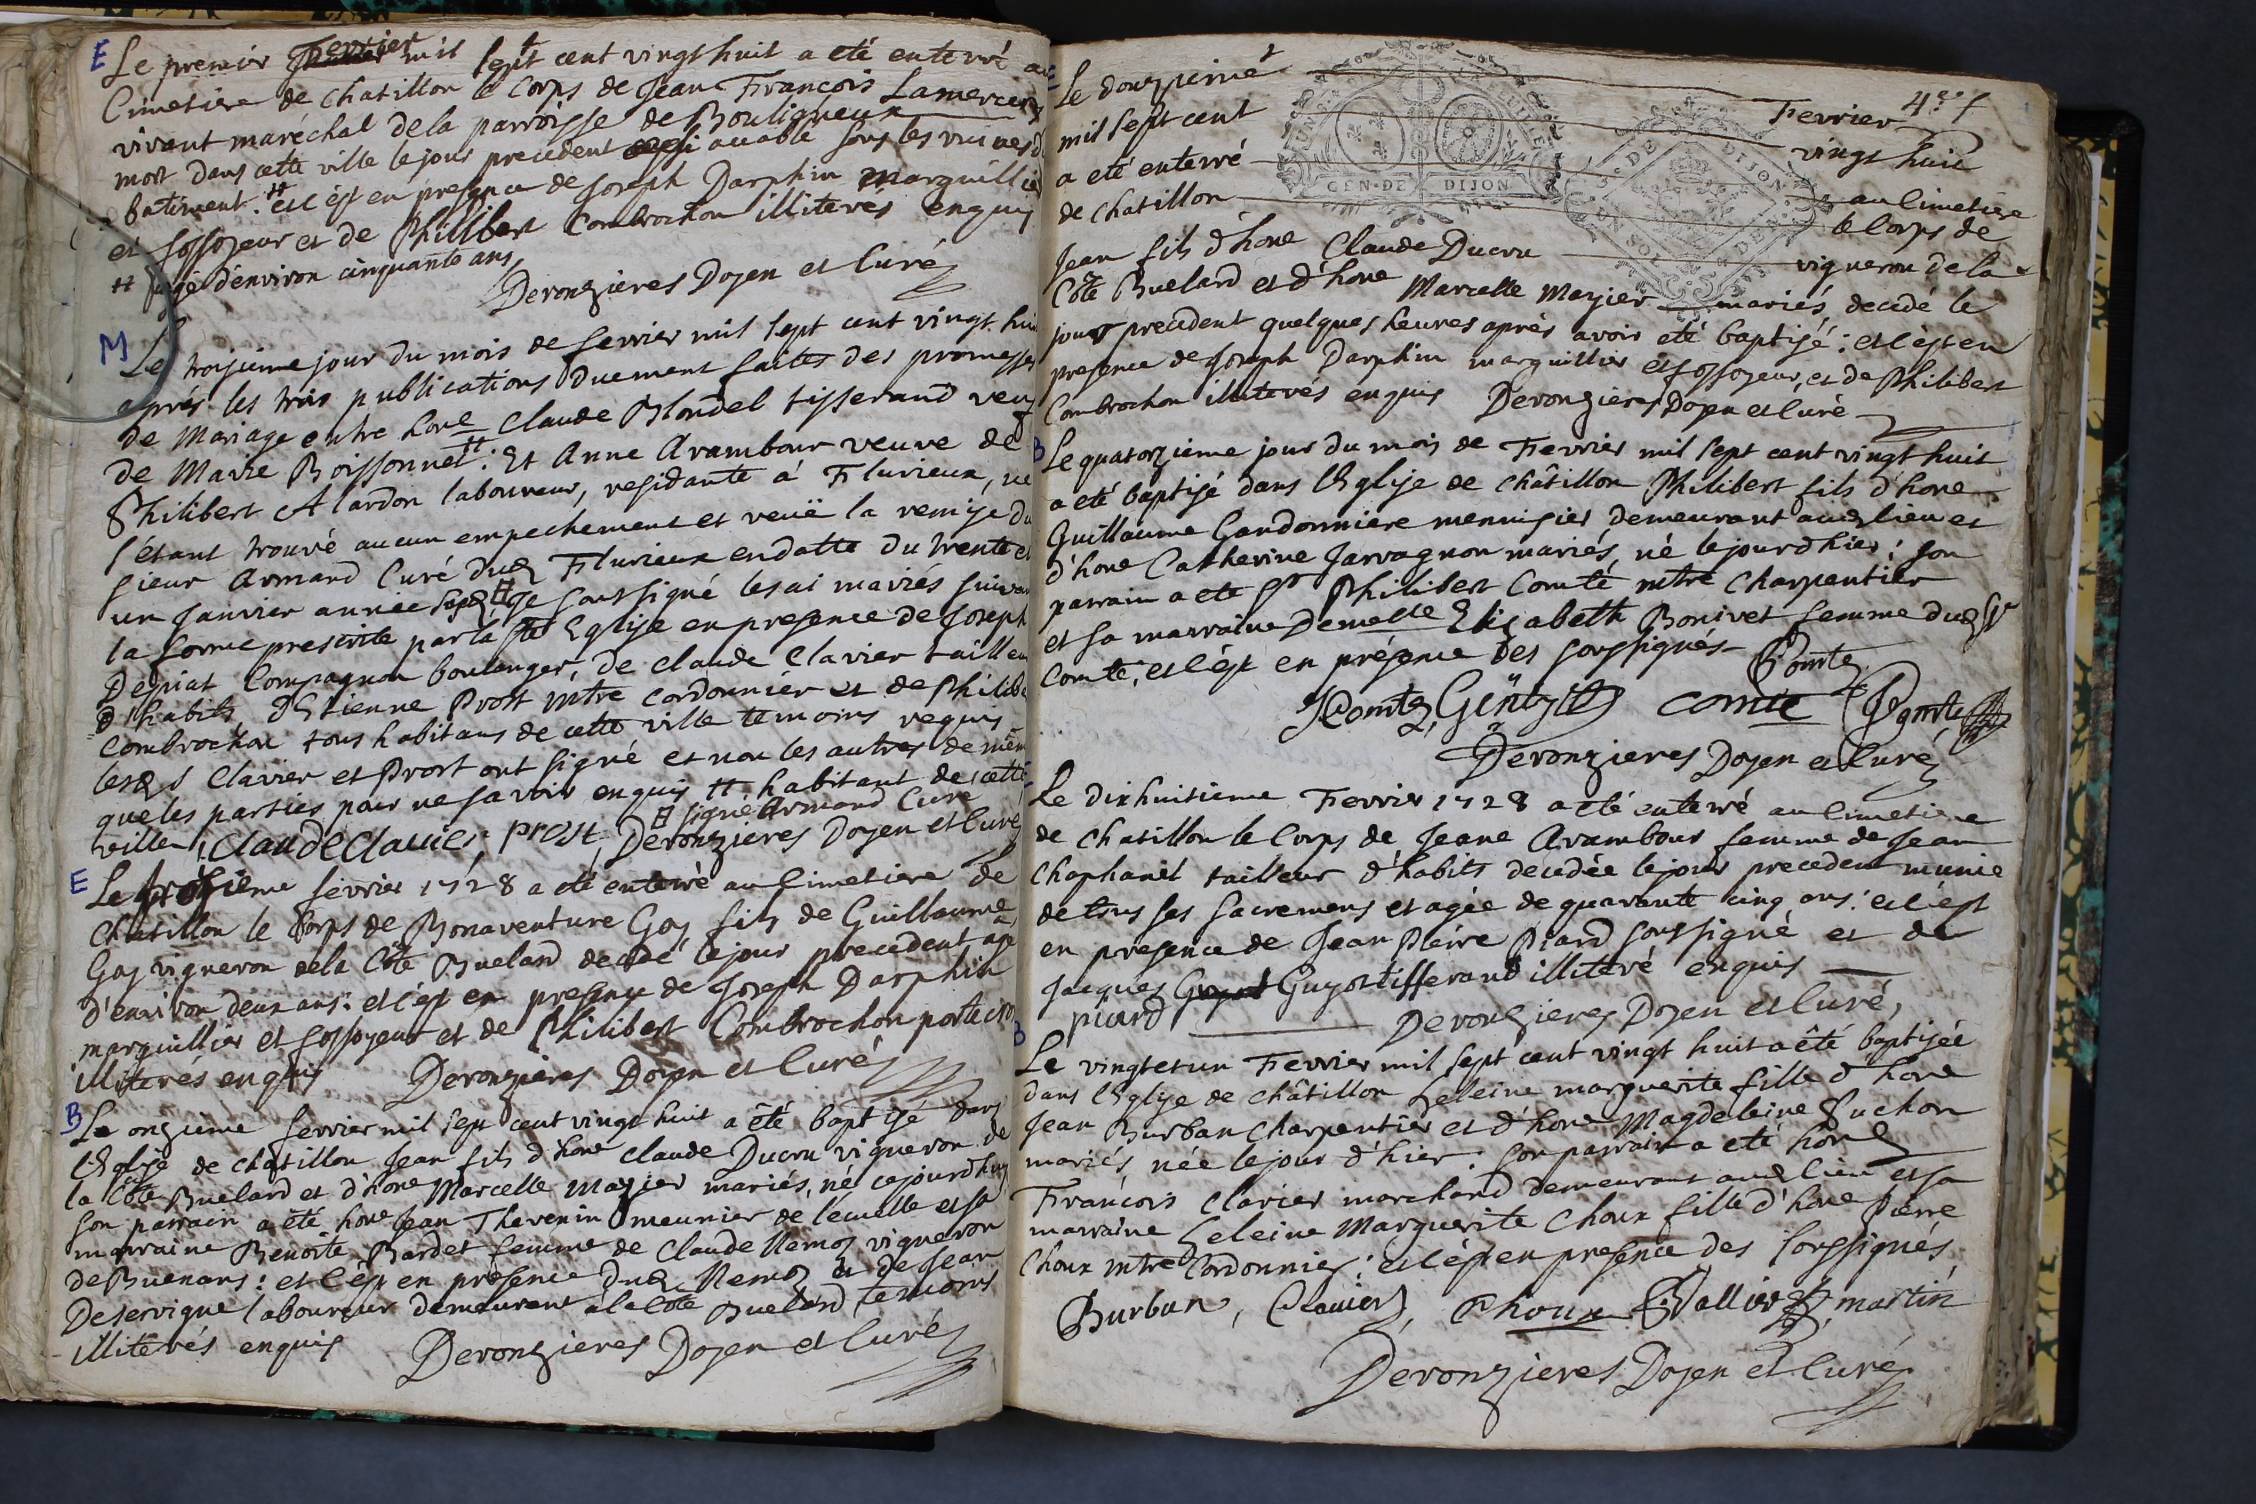 E Le premier Fevrier mil sept cent vingt huit a eté enterré au
Cimetiere de Chatillon le Corps de Jean François Lamercery
vivant maréchal de la parroisse de Bouligneux
mort dans cette ville le jour precedent accablé sous les ruines d
batiment. # et c'est en presence de Joseph Darphin marguillier
et fossoyeur et de Philibert Combrochon illiterés enquis
# agé d'environ cinquante ans
Deronzieres Doyen et Curé
M Le troisieme jour du mois de fevrier mil sept cent vingt hui
aprés les trois publications duement faites des promesses
de Mariage entre hone Claude Blondel tisserand veuf
de Marie Boissonnet #: Et Anne Arambour veuve de
Philibert Alardon laboureur, residante à Flurieux, ne
s'étant trouvé aucun empechement et veuë la remise du
sieur Armand Curé dud Flurieux en datte du trente et
un Janvier année susd je soussigné les ai mariés suivan
la forme prescrite par la Ste Eglise en presence de Joseph
Depiat Compagnon boulanger, de Claude Clavier tailleu
d'habits, d'Etienne Prost mtre cordonnier et de Philibe
Combrochon tous habitans de cette ville temoins requis
lesd s Clavier et Prost ont signé et non les autres de mêm
que les parties pour ne savoir enquis # habitant de cette
ville signé Armand Curé
Claude Clavier Prost Deronzieres Doyen et Curé
E Le troisieme fevrier 1728 a eté enterré au Cimetiere de
Chatillon le Corps de Bonaventure Goy fils de Guillaume
Goy vigneron de la Côte Buelard decedé le jour precedent agé
d'environ deux ans: et c'est en presence de Joseph Darphin
marguillier et fossoyeur et de Philibert Combrochon porte croi
illiterés enquis Deronzieres Doyen et Curé
B Le onzieme fevrier mil sept cent vingt huit a êté baptisé dans
l'Eglise de chatillon Jean fils d'hone Claude Ducru vigneron de
la Côte Buelard et d'hone Marcelle Mazier mariés, né cejourdhuy
son parrain a êté hone Jean Thevenin meunier de l'écuelle et sa
marraine Benoite Bardet femme de Claude Nemoz vigneron
de Buenans: et c'est en presence dud Nemoz et de Jean
Deservigne laboureur demeurant à la Côte Buelard temoins
illiterés enquis Deronzieres Doyen et Curé
4e f
Le douzieme Fevrier
mil sept cent vingt huit
a eté enterré au Cimetiere
de Chatillon le Corps de
Jean fils d'hone Claude Ducru vigneron de la
Côte Buelard et d'hone Marcelle Mazier mariés, decedé le
jour precedent quelques heures aprés avoir eté baptisé: et c'est en
presence de Joseph Darphin marguillier et fossoyeur, et de Philibert
Combrochon illiterés enquis Deronzieres Doyen et Curé
GEN. DE DIJON
DE DIJON
UN SOL
B Le quatorzieme jour du mois de Fevrier mil sept cent vingt huit
a eté baptisé dans l'Eglise de Châtillon Philibert fils d'hone
Guillaume Gandonniere menuisier demeurant aud lieu et
d'hone Catherine Jarvagnon mariés, né le jour d'hier: son
parrain a eté Sr Philibert Comte mtre Charpentier
et sa marraine Demelle Elizabeth Bonivet femme dud Sr
Comte, et c'est en présence des soussignés
Comte
Comte, comte
Deronzieres Doyen et Curé
Le dixhuitieme Fevrier 1728 a eté enterré au Cimetiere
de Chatillon le Corps de Jeane Arambour femme de Jean
Chaphanel tailleur d'habits decedée le jour precedent munie
de tous ses sacremens et agée de quarante cinq ans: et c'est
en presence de Jean Pierre Picard soussigné et de
Jacques Guyot tisserand illiteré enquis
picard Deronzieres Doyen et Curé
B Le vingt et un Fevrier mil sept cent vingt huit a êté baptisée
dans l'Eglise de Châtillon heleine marguerite fille d'hone
Jean Burban charpentier et d'hone Magdeleine Puchon
mariés née le jour d'hier: son parrain a eté hone
François Clavier marchand demeurant aud lieu et sa
marraine heleine Marguerite Choux fille d'hone Pierre
Choux mtre Cordonnier: et c'est en presence des soussignés
Burban, Clavier, Choux Vallier martin
Deronzieres Doyen et Curé